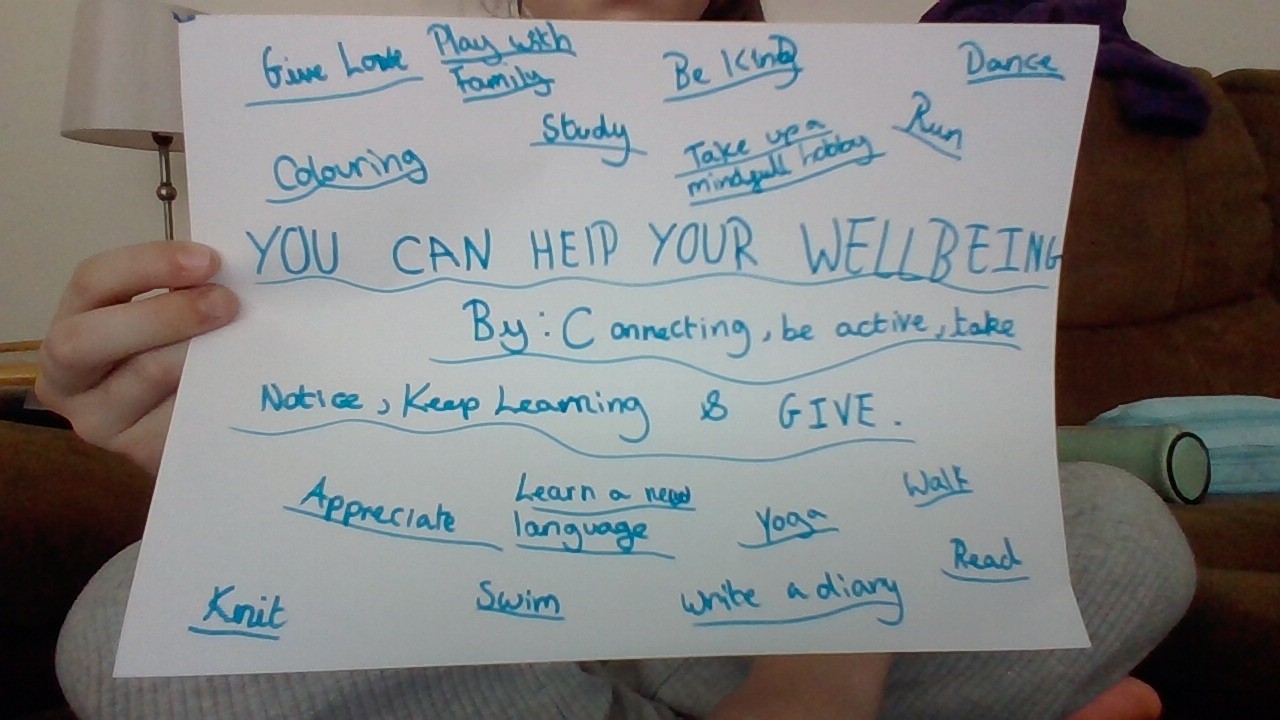 Give Love
Play with
Family
Be Kind
Dance
Colouring
Study
Take up a
mindfull hobby
Run
YOU CAN HElP YOUR WELLBEING
By: Connecting, be active, take
Notice, Keep Learning & GIVE.
Appreciate
Learn a new
language
Yoga
Walk
Knit
Swim
Write a diary
Read